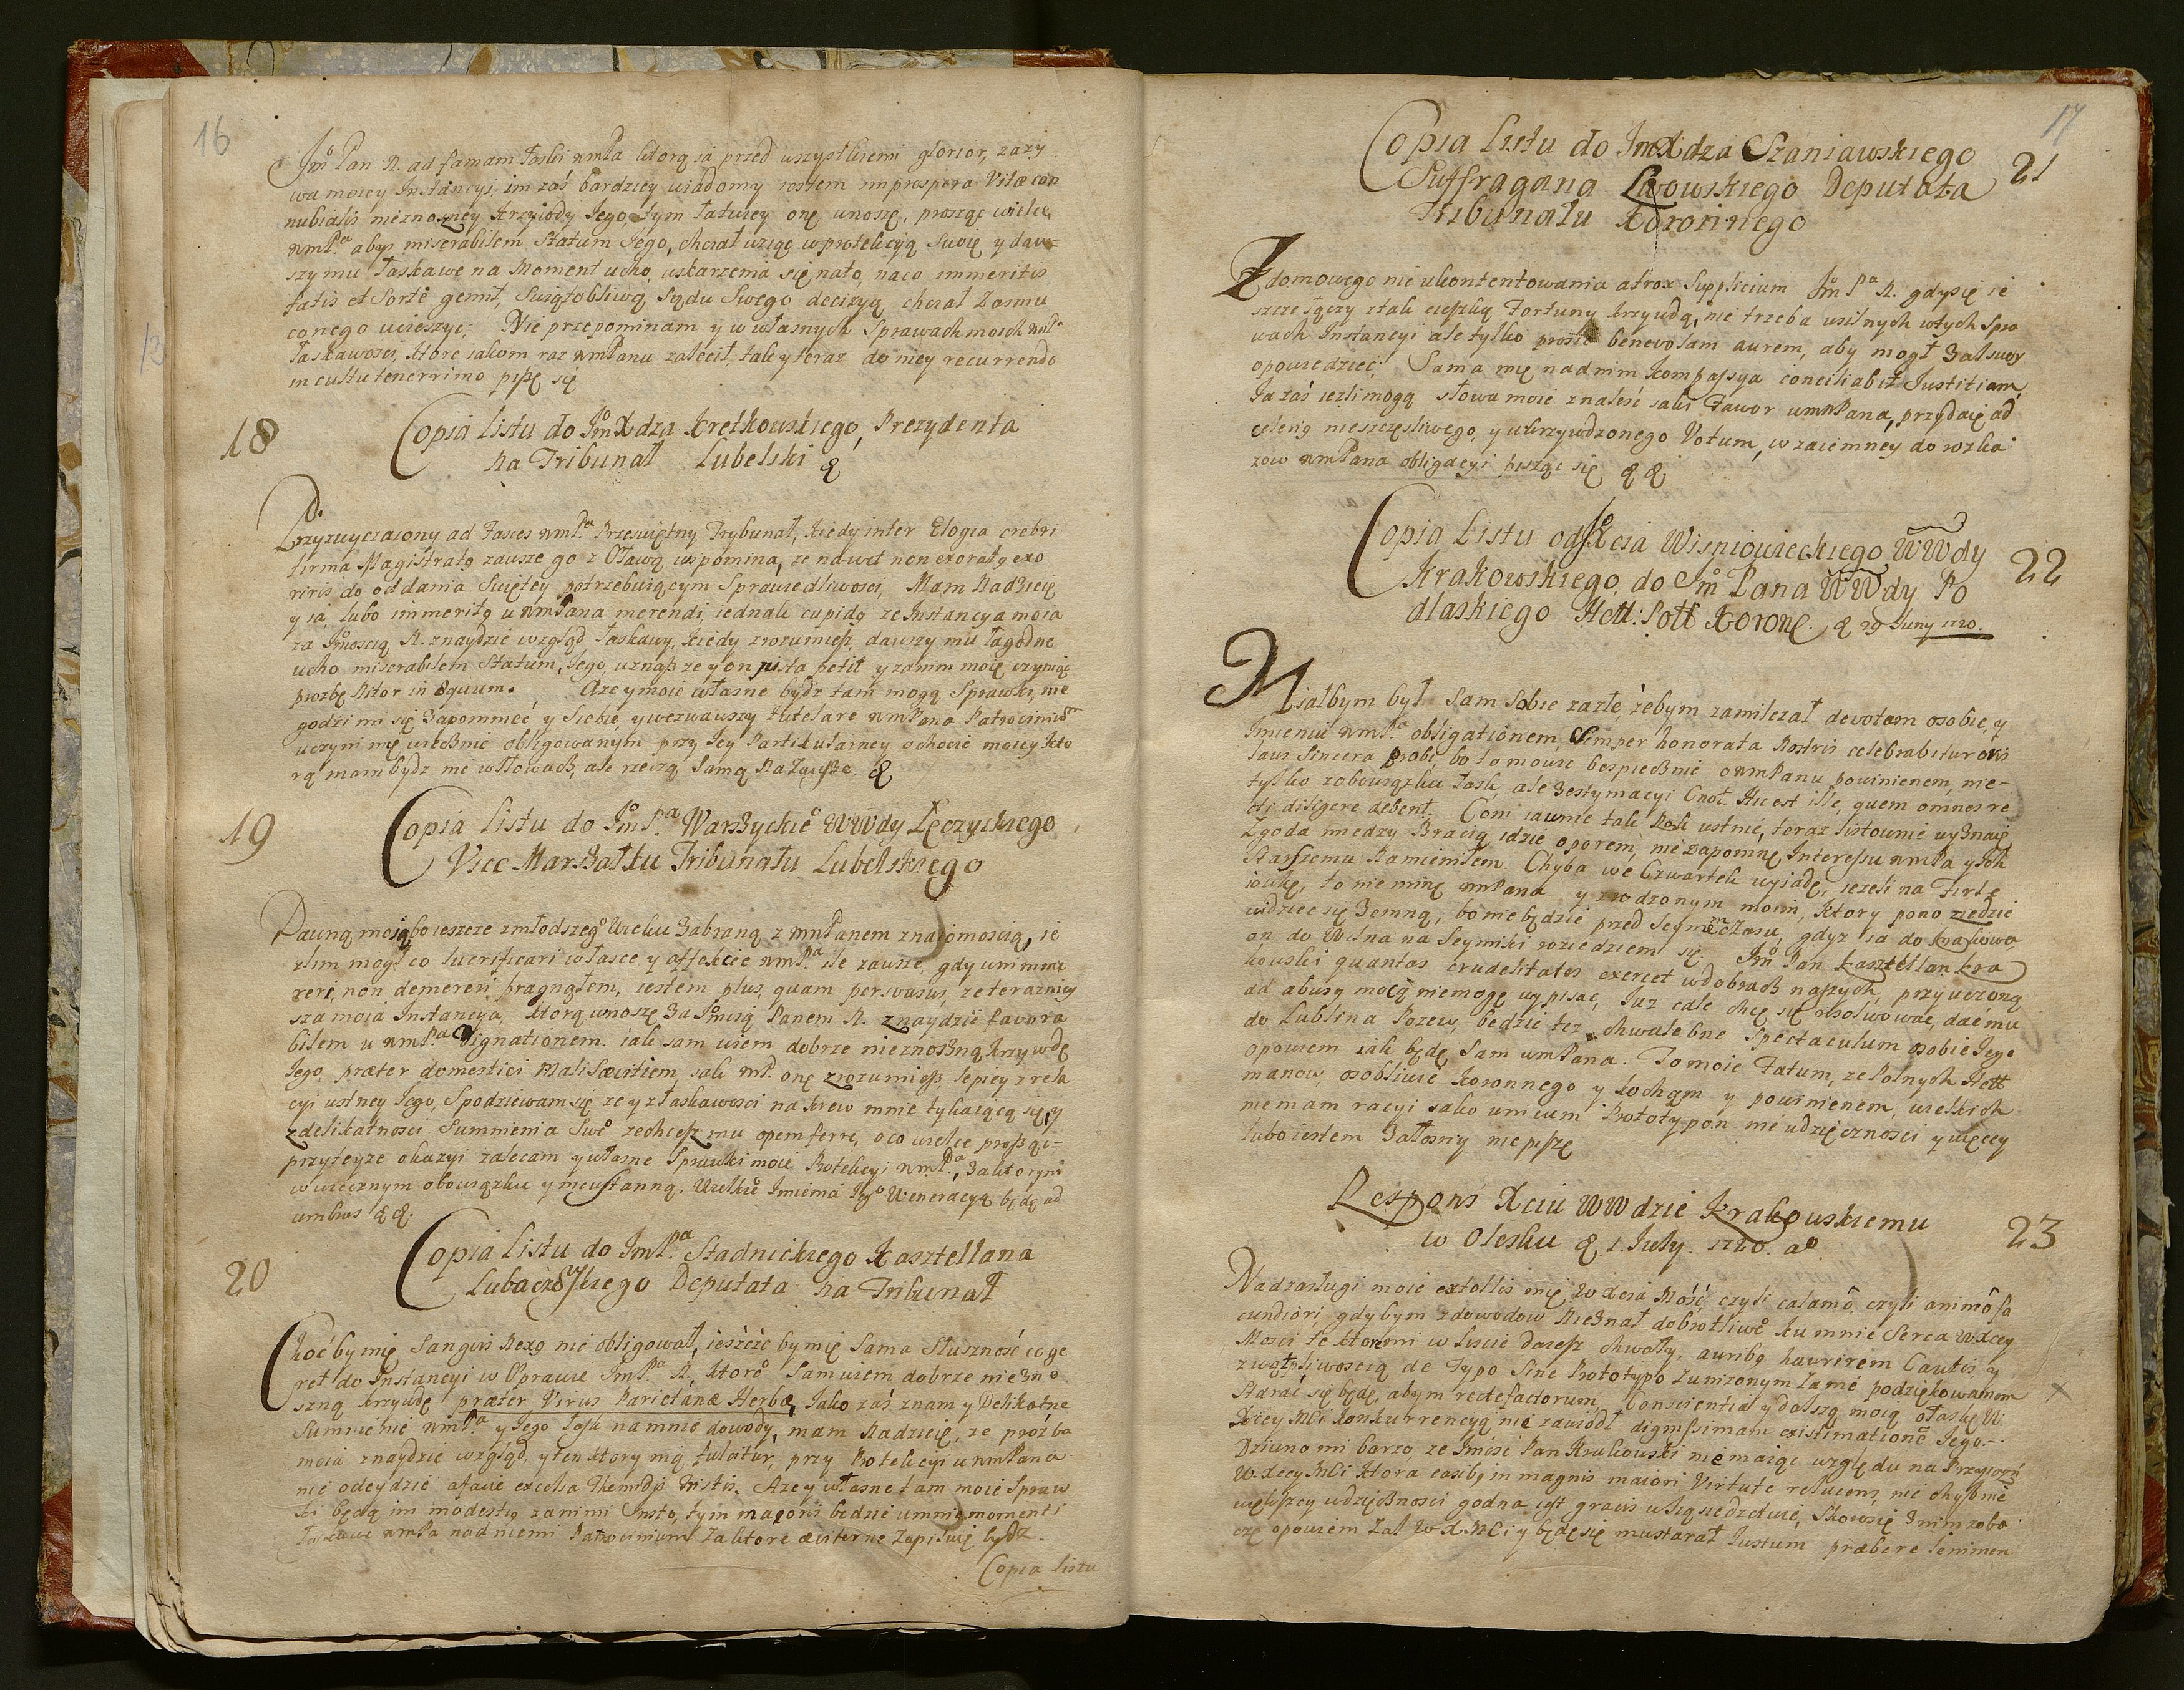 16
Jmº Pan N. ad famam łaski wmPa ktorą ia przed wszystkiemi glorior, zazy
wa moiey Instancyi, im zaś bardziey wiadomy iestem improspera Vitæ con
nubialis nieznośney krzywdy Iego, tym łatwiey onę wnoszę, proszę wielce
wmPª abyś miserabilem statum Iego, chciał wziąć w protekcyą swoię y daw=
szy mu łaskawe na moment ucho, uskarzenia się nato, naco immeritis
fatis et sorte gemit, swiątobliwą sądu swego decizyą chciał zasmu
conego ucieszyć. Nie przepominam y w własnych sprawach moich wmPª
łaskawości, ktore iakom raz wmPanu zalecił, tak y teraz do niey recurrendo
in cultu tenerrimo piszę się
18
Copia listu do JmXdza Kretkowskiego, Prezydenta
na Tribunał Lubelski &
Przyzwyczaiony ad Fasces wmPª Przeswiętny Trybunał, kiedy inter Elogia crebri
firma Magistratq zawsze go z sławą wspomina, ze nawet non exoratq exo
riris do oddania swiętey potrzebuiącym sprawiedliwosci, Mam Nadzieię
y ia, lubo immeritq u wmPana merendi, iednak cupidq ze Instancya moia
za Jmoscią N. znaydzie wzgląd łaskawy, kiedy zrozumiesz, dawszy mu łagodne
ucho miserabilem statum, Iego, uznasz ze y on justa petit y zanim moię czyniąc
prozbę Nitor in æquum. Aze y moie własne bydz tam mogą sprawki, nie
godzi mi się zapomnieć y siebie y wezwawszy tutelare wmPana Patrocinium
uczyni mię wiecznie obligowanym przy Iey Partikularney ochocie moiey kto
rą mam bydz nie w słowach, ale rzeczą samą Na Zawsze. &
19
Copia listu do JmPª Warszyckiº WWdy Łęczyckiego
Vice Marszałku Tribunału Lubelskiego
Dawną moią bo ieszcze z młodszegº wieku zabraną z wmPanem znaiomoscią, ie
zlim mogł co lucrificari w łasce y affekcie wmPª ile zawsze, gdy unimmi
reri, non demereri pragnąłem, iestem plus, quam perswasus, ze teraznieỵ
sza moia Instancya, ktorą wnoszę za Jmscią Panem N. znaydzie favora
bilem u wmPª Dignationem. iak sam wiem dobrze nieznośną krzywdę
Iego, præter domestici mali sævitiem, iak wmP. onę zrozumiesz lepiey z rela
cyi ustney Iego, Spodziewam się ze y z łaskawosci na krew mnie tykaiącą się y
z delikatnosci Summienia swº zechcesz mu opem ferre, o co wielce proszę:=
przy teyze okazyi zalecam y własne sprawki moie Protekcyi wmPª, za ktorym
w wiecznym obowiązku y nieustanną. Wielkiº Imienia Iegº Weneracyą będę ad
umbras &&.
20
Copia listu do JmPª Stadnickiego Kasztellana
Lubaczowskiego Deputata na Tribunał
Choćby mię Sangvis Nexq nie obligował, ieszcze by mię sama Słuszność coge
ret do Instancyi w Sprawie JmPª N. ktorº sam wiem dobrze niezno
szną krzywdę præter Virus Parietanæ Herbæ, Iako zaś znam y Delikatne
Summienie wmPª y Iego łask namnie dowody, mam Nadzieię, ze prozba
moia znaydzie wzgląd, y ten ktory nią fulcitur, przy Protekcyi u wmPana
nie odeydzie a favie excelsa Themidis tristis. Aze y własne tam moie Spraw
ki będą im modestiq zaniemi Insto, tym maioris będzie u mnie momenti
łaskawe wmPa nad niemi Patrocinium za ktore æviterne zapisuię bydz.
Copia listu
17
Copia listu do JmXdza Szaniawskiego
Suffragana Lwowskiego Deputata
Tribunału Koronnego
21
Z domowego nie ukontentowania atrox supplicium JmPª N. gdy się ie
szcze łączy z tak cięszką Fortuny krzywdą, nie trzeba usilnych w tych spra
wach Instancyi ale tylko proste benevolam aurem, aby mogł zal swoy
opowiedzieć. Sama mię nad nim kompassya conciliabit Iustitiam
Ia zaś iezli mogą słowa moie znaleść iaki Fawor u wmPana, przydaię ad
celeriq nieszczęśliwego, y ukrzywdzonego Votum, wzaiemney do rozka
zow wmPana obligacyi pisząc się &&
Copia Listu od Xcia Wisniowieckiego WWdy
Krakowskiego, do Jmº Pana WWdy Po
dlaskiego Hett: Poll Koronº. & 29 Juny 1720.
22
Miałbym był sam sobie zazłe, żebym zamilczał devotam osobie, y
Imieniu wmPª obligationem, Semper honorata Nostris celebrabitur oris
laus Sincera probi, bo to mowić bespiecznie o wmPanu powinienem, nie-
tylko z obowiązku łask, ale z estymacyi Cnot. Hic est ille, quem omnes re
cte diligere debent. Com iawnie tak Nok ustnie, teraz listownie wyznaię
Zgoda miedzy Bracią idzie oporem, nie zapomnę Interessu wmPa y Iok
Starszemu Namieniłem. Chyba we Czwartek wyiadę, iezeli na Firlę
iowkę, to nie minę wmPana y z rodzonym moim, ktory pono ziedzie
widziec się zemną, bo nie będzie pred Seymem czasu, gdyz ia do Krakowa
on do Wilna na Seymiki roziedziem się. Jmº Pan Kasztellan Kra
kowski quantas crudelitates exercet w dobrach naszych, przywczoną
ad abusq mocą niemogę wypisać, Iuz cale chcę się resolwować, dać mu
do Lublina Pozew, będzie tez chwalebne Spectaculum osobie Iego
opowiem iak będę sam u wmPana. To moie Fatum, ze Polnych Hett
manow, osobliwie Koronnego y kocham y powinienem, wielkich
niemam racyi iako unicum Prototypon nie wdzięcznosci y więcey
lubo iestem załosny niepiszę
Respons Xciu WWdzie Krakowskiemu
w Olesku & 1. July. 1720. aº.
23
Nad zasługi moie extollis mię WXcia Mość, czyli calamô, czyli animô fa
cundiori, gdybym z dowodow Nieznał dobrotliwº ku mnie Serca WXcey
Mosci te ktoremi w liscie daiesz chwały, auribq haurirem Cautis, y
z wątpliwoscią de Typo Sine Prototypo Zunizonym Zamię podziękowaniem
Starać się będę, abym recte factorum Conscientiâ y dalszą moią o łaskę W
Xcey Mci konkurrencyą nie zawiodł dignissimam existimationê Iego.-
Dziwno mi barzo, ze Jmśći Pan Krakowski nie maiąc względu na Przyiazń
WXcey Mci ktora casibq in magnis maiori Virtute relucens, nie chybnie
większey wdzięcznosci godna iest gravis w Sąsiedztwie, Skoro się z nim zoba
czę opowiem Zal WXMci y będę się mu starał Iustum præbere lenimen